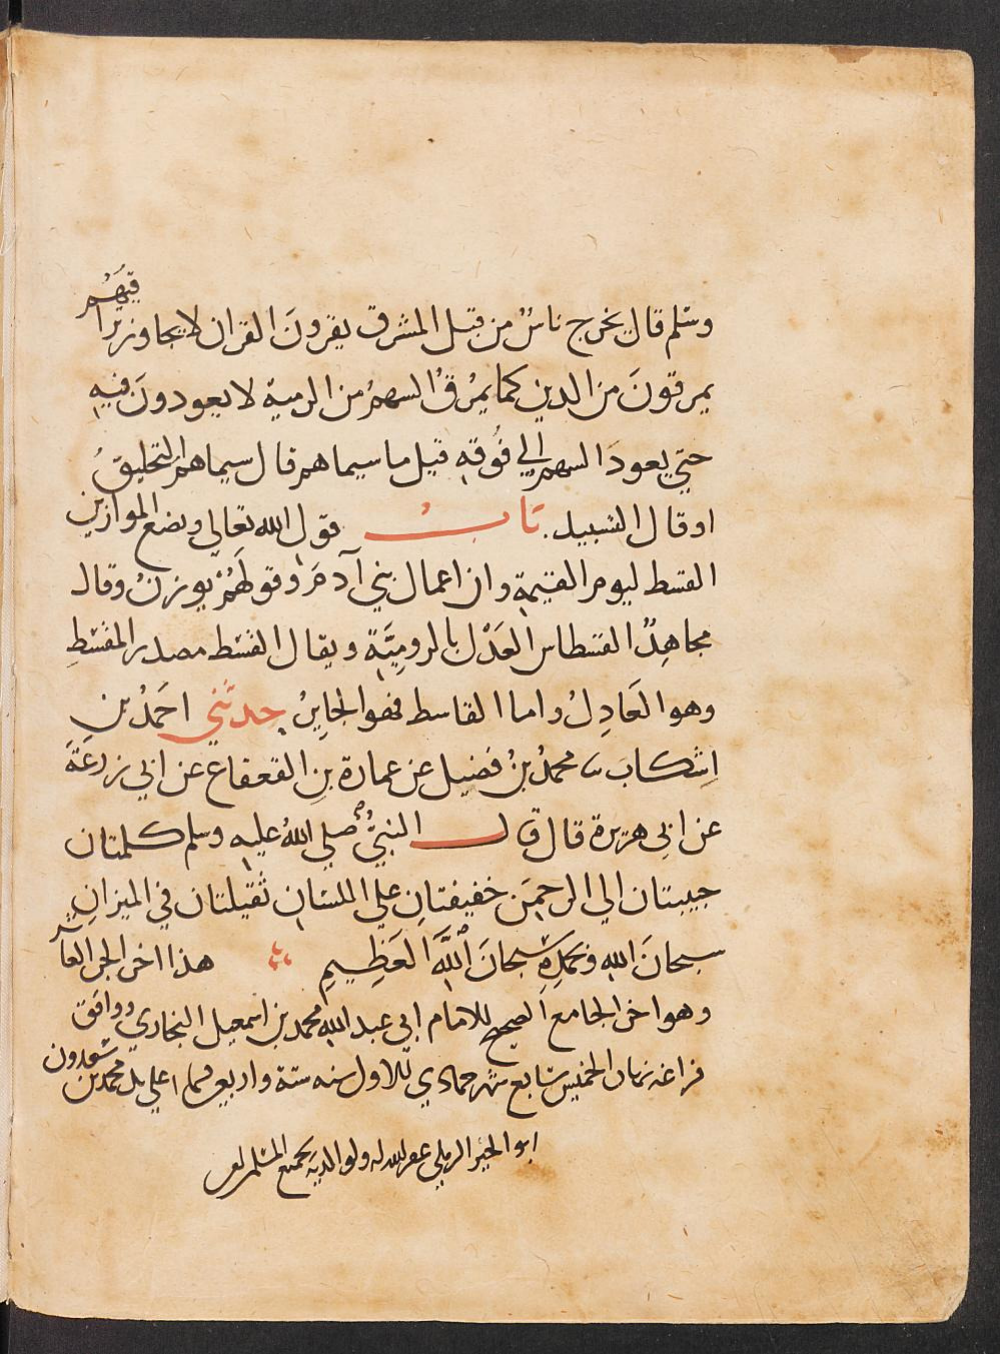 وسلم قال يخرج ناسٌ من قبل المشرق يقرونَ القران لا يجاوز تراقيَهُم
يمرقونَ من الدين كما يمرُقُ السهمُ من الرمية لا يعودونَ فيه
حتي يعودَ السهم الي فُوقه قيل ما سيماهم قال سيماهمُ التحليقُ
او قال التسبيد. باب قول الله تعالى ونضع الموازين
القسط ليوم القيمة وان اعمال بني آدمَ وقولهُمْ يوزنُ وقال
مجاهِدٌ القسطاس العَدْل بالرومِيَّة ويقال القسْط مصدر المقسْطِ
وهو العَادِلُ واما القاسط فهو الجايِرُ حدثَني احَمدُ بن
اِشكابَ نا محمدُ بنُ فضيل عن عمارة بنِ القعقاع عن ابي زرعَةَ
عن ابي هريرة قال قال النبيُّ صلي اللهُ عليه وسلم كلمتان
حبيبتان الي الرحمَن خفيفتانِ علي اللسَان ثقيلتان في الميزانِ
سبحانَ الله وبحمدِهِ سبحانَ اللَّهِ العَظِيمِ هذا اخر الجز العاشر
وهو اخر الجامع الصحيح للامام ابي عبد الله محمد بن اسمعيل البخاري ووافق
فراغه نهار الخميس سابع شهر جمادي الاول سنه ستة واربعين علي يد محمد بن سعدون
ابو الخير الرملي غفر الله له ولوالديه ولجميع المسلمين